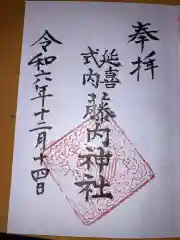 奉拝
延喜
式内
藤内神社
令和六年十二月十四日